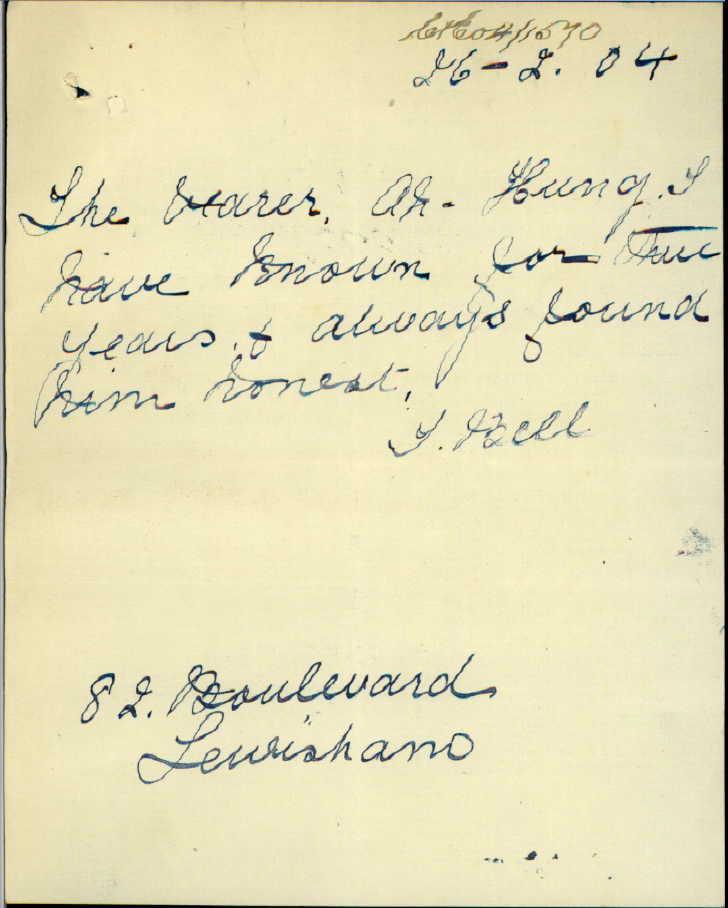 26-2.04
The bearer, Ah-Hung. I
have known for five
years, & always found
him honest,
J. Bell
82. Boulevard
Lewisham